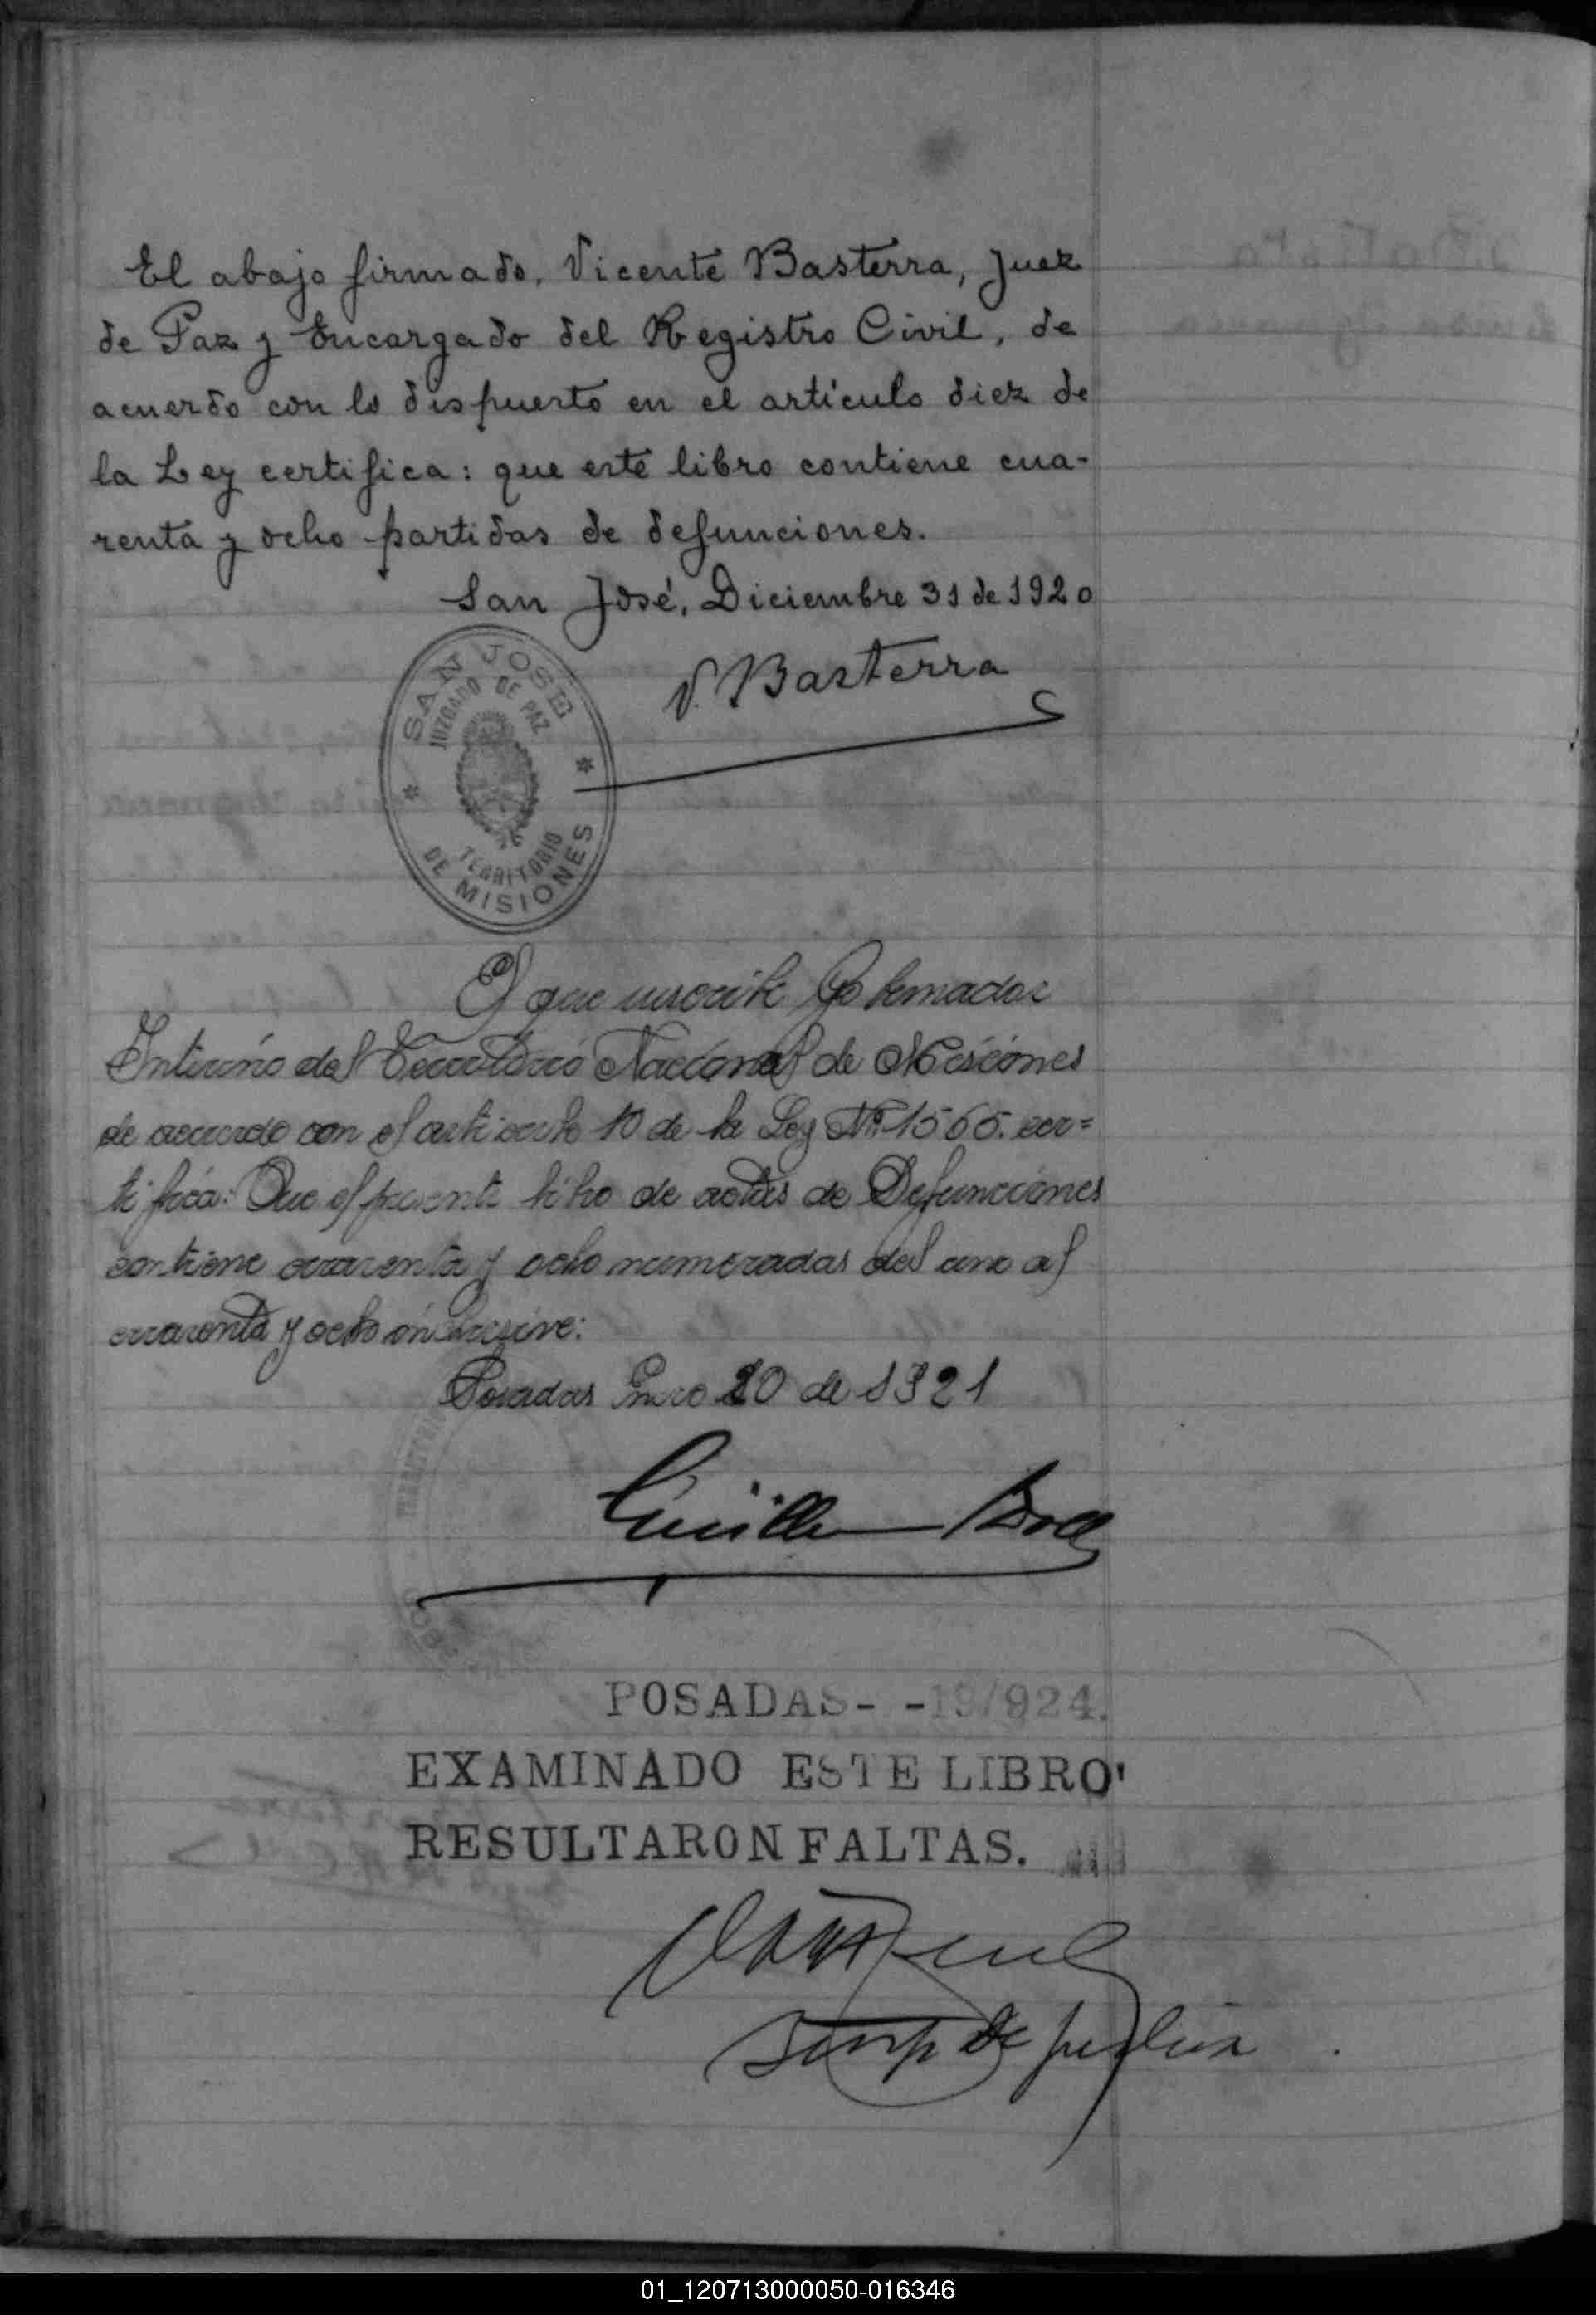 El abajo firmado, Vicente Basterra, Juez
de Paz y Encargado del Registro Civil, de
acuerdo con lo dispuesto en el artículo diez de
la Ley certifica: que este libro contiene cua-
renta y ocho partidas de defunciones.
San José, Diciembre 31 de 1920
V. Basterra
SAN JOSE
JUZGADO DE PAZ
TERRITORIO
DE MISIONES
El que suscribe Gobernador
Interino del Territorio Nacional de Misiones
de acuerdo con el articulo 10 de la Ley Nº 1565. cer=
tifica: Que el presente libro de actas de Defunciones
contiene cuarenta y ocho numeradas del uno al
cuarenta y ocho inclusive:
Posadas Enero 20 de 1921
POSADAS- -19/924.
EXAMINADO ESTE LIBRO
RESULTARON FALTAS.
01_120713000050-016346